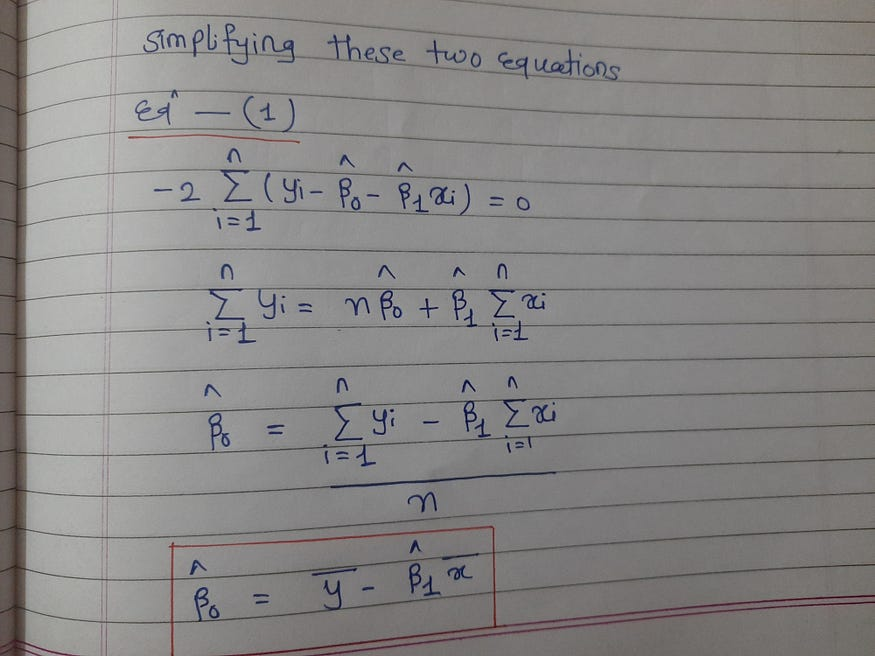 Simplifying these two equations
Eqⁿ — (1)
-2 ∑ᵢ₌₁ⁿ (yᵢ - β̂₀ - β̂₁xᵢ) = 0
∑ᵢ₌₁ⁿ yᵢ = nβ̂₀ + β̂₁ ∑ᵢ₌₁ⁿ xᵢ
β̂₀ = (∑ᵢ₌₁ⁿ yᵢ - β̂₁ ∑ᵢ₌₁ⁿ xᵢ) / n
β̂₀ = y̅ - β̂₁x̅